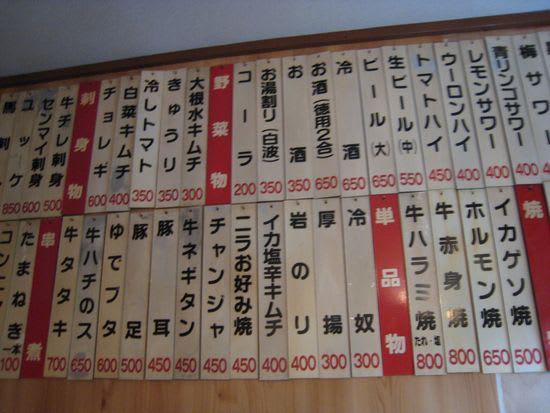 梅サワー 400
青リンゴサワー 400
レモンサワー 400
ウーロンハイ 400
トマトハイ 450
生ビール(中) 550
ビール(大) 650
冷酒 650
お酒(徳用2合) 650
お酒 350
お湯割り(白波) 350
コーラ 200
野菜物
大根水キムチ 300
きゅうり 350
冷しトマト 350
白菜キムチ 400
チョレギ 600
刺身物
牛チレ刺身 500
センマイ刺身 600
ユッケ 850
馬刺
焼
イカゲソ焼 500
ホルモン焼 650
牛赤身焼 800
牛ハラミ焼 たれ・塩 800
単品物
冷奴 300
厚揚 300
岩のり 400
イカ塩辛キムチ 400
ニラお好み焼 450
チャンジャ 450
牛ネギタン 450
豚耳 450
豚足 500
ゆでブタ 600
牛ハチのス 650
牛タタキ 700
串煮
たまねぎ一本 100
コンニャ